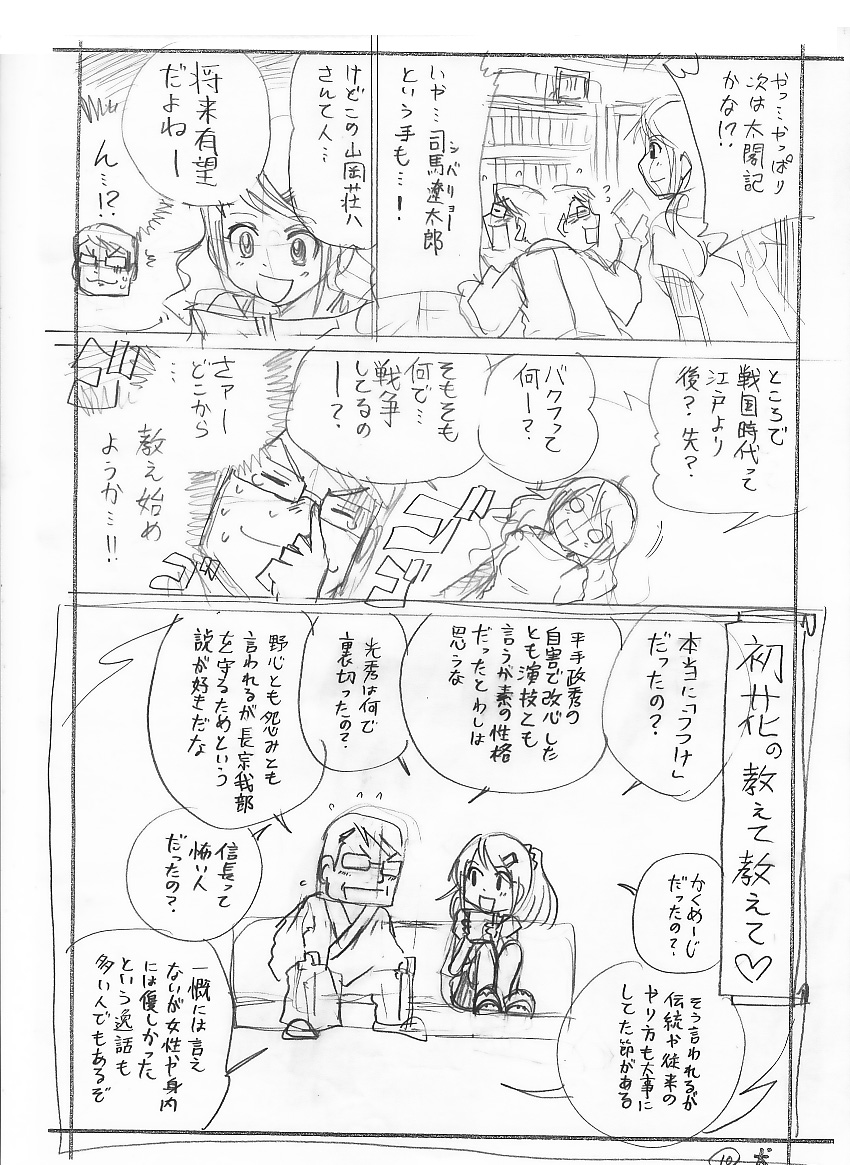 やっ…やっぱり
次は太閤記
かな!?
いや…司馬遼太郎
シバリョー
という手も…!
けどこの山岡荘八
さんて人…
将来有望
だよねー
ん…!?
ところで
戦国時代って
江戸より
後?先?
バクフって
何ー?
そもそも
何で…
戦争
してるの
ー?
さァー
どこから
…
教え始め
ようか…!!
初花の教えて教えて♡
本当に「うつけ」
だったの?
平手政秀の
自害で改心した
とも演技とも
言うが素の性格
だったとわしは
思うな
光秀は何で
裏切ったの?
野心とも怨みとも
言われるが長宗我部
を守るためという
説が好きだな
かくめーじ
だったの?
そう言われるが
伝統や従来の
やり方も大事に
してた節がある
信長って
怖い人
だったの?
一概には言え
ないが女性や身内
には優しかった
という逸話も
多い人でもあるぞ
10